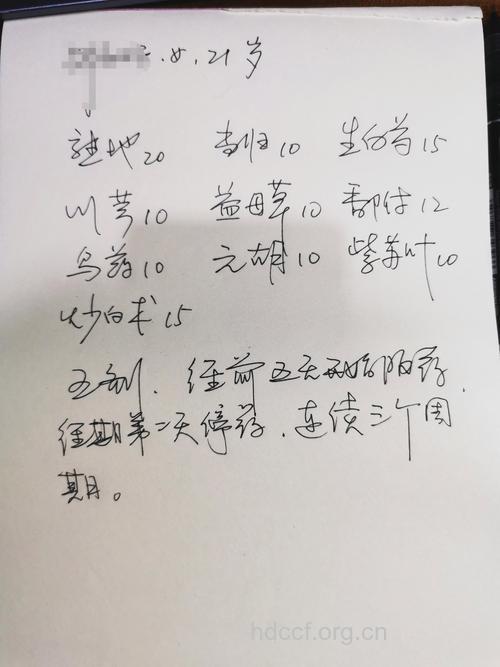 女.21岁
熟地20 当归10 生白芍15
川芎10 益母草10 香附12
乌药10 元胡10 紫苏叶10
炒白术15
五剂.经前五天开始服药.
经期第二天停药.连续三个周
期。
hdccf.org.cn